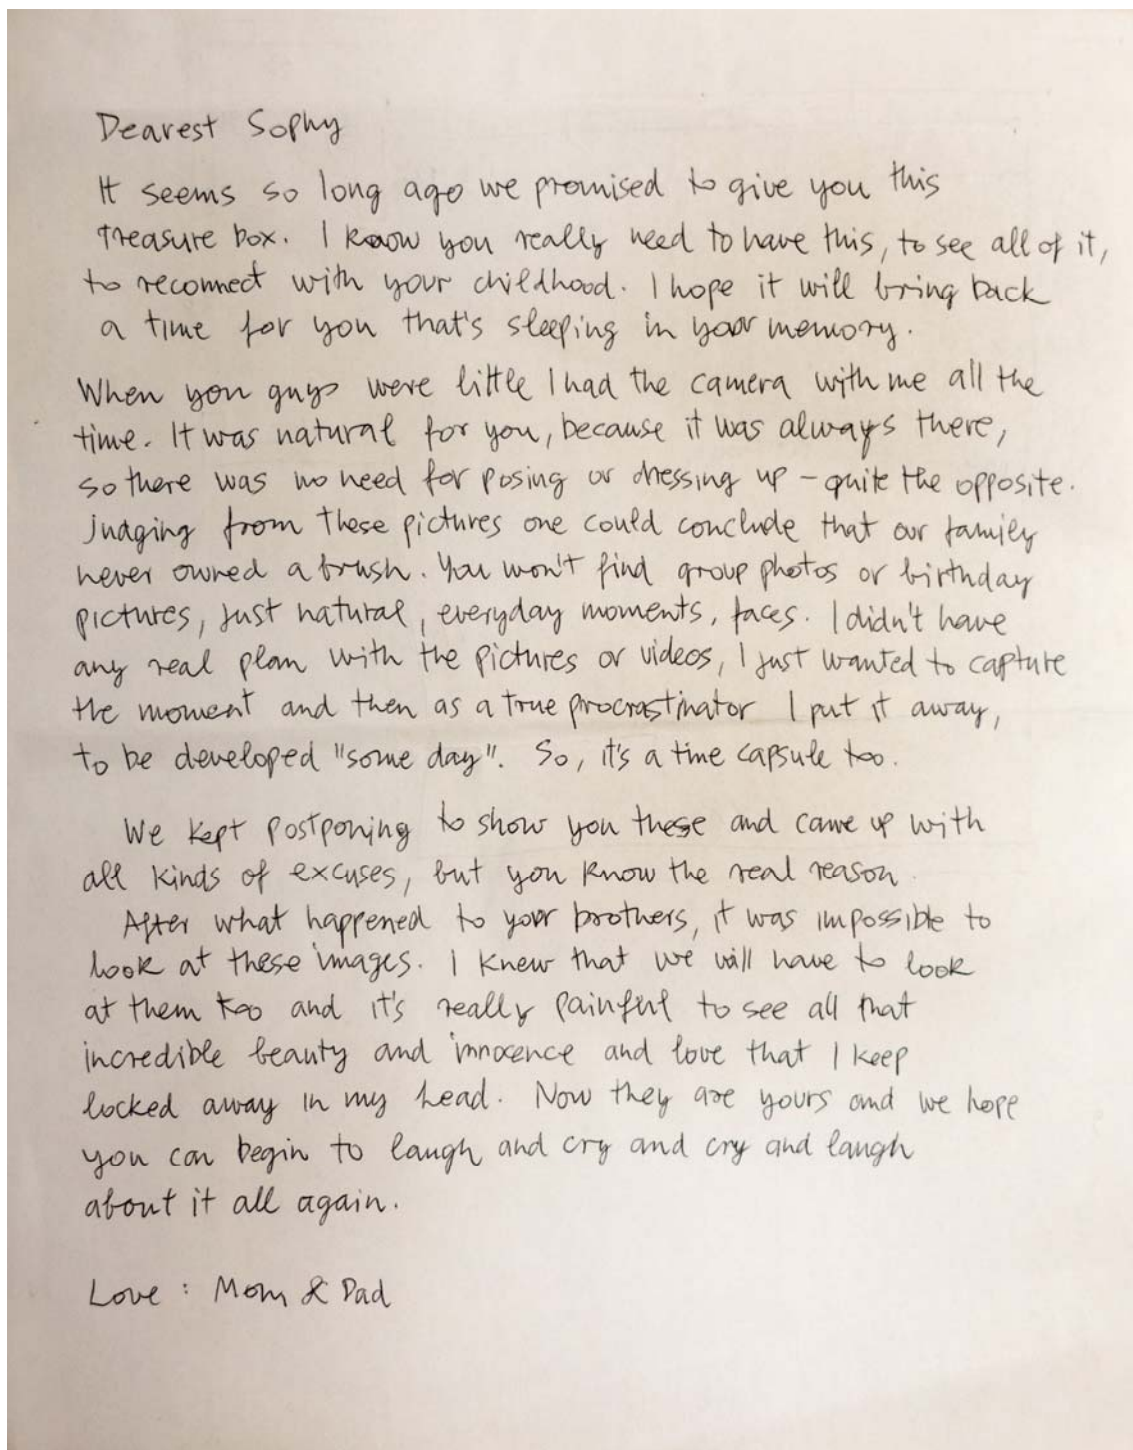 Dearest Sophy
It seems so long ago we promised to give you this
treasure box. I know you really need to have this, to see all of it,
to reconnect with your childhood. I hope it will bring back
a time for you that's sleeping in your memory.
When you guys were little I had the camera with me all the
time. It was natural for you, because it was always there,
so there was no need for posing or dressing up – quite the opposite.
Judging from these pictures one could conclude that our family
never owned a brush. You won't find group photos or birthday
pictures, just natural, everyday moments, faces. I didn't have
any real plan with the pictures or videos, I just wanted to capture
the moment and then as a true procrastinator I put it away,
to be developed "some day". So, it's a time capsule too.
We kept postponing to show you these and came up with
all kinds of excuses, but you know the real reason.
After what happened to your brothers, it was impossible to
look at these images. I knew that we will have to look
at them too and it's really painful to see all that
incredible beauty and innocence and love that I keep
locked away in my head. Now they are yours and we hope
you can begin to laugh and cry and cry and laugh
about it all again.
Love : Mom & Dad